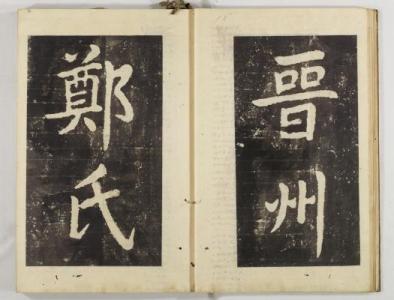 晉州
鄭氏